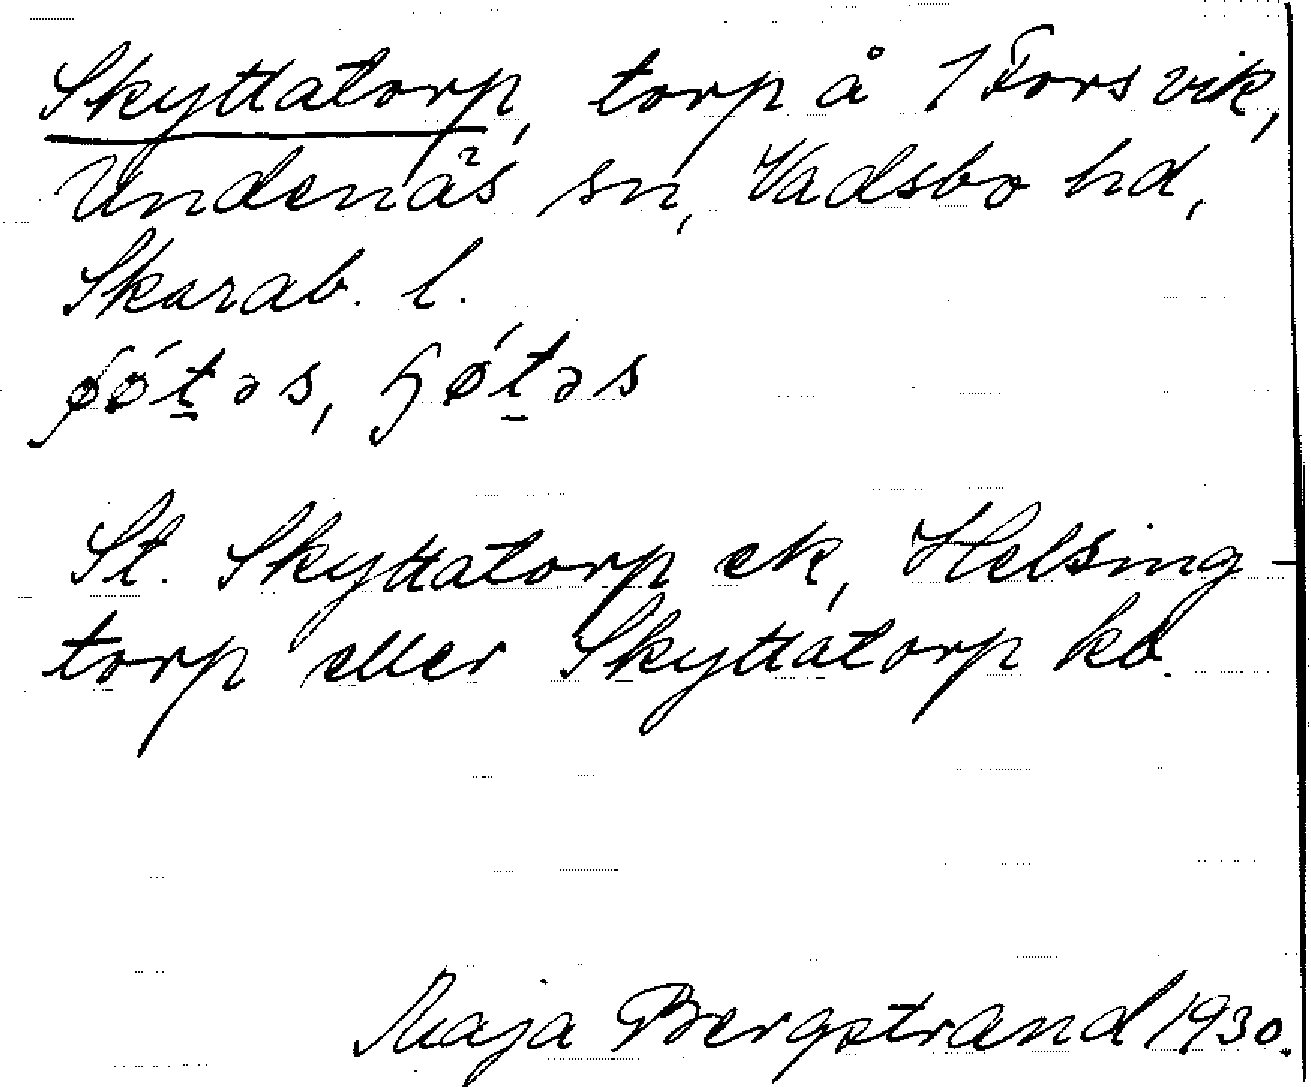 Skyttatorp, torp å 1 Forsvik,
Undenäs sn, Vadsbo hd,
Skarab. l.
St. Skyttatorp ek, Helsing-
torp eller Skyttatorp kb.
Maja Bergstrand 1930.